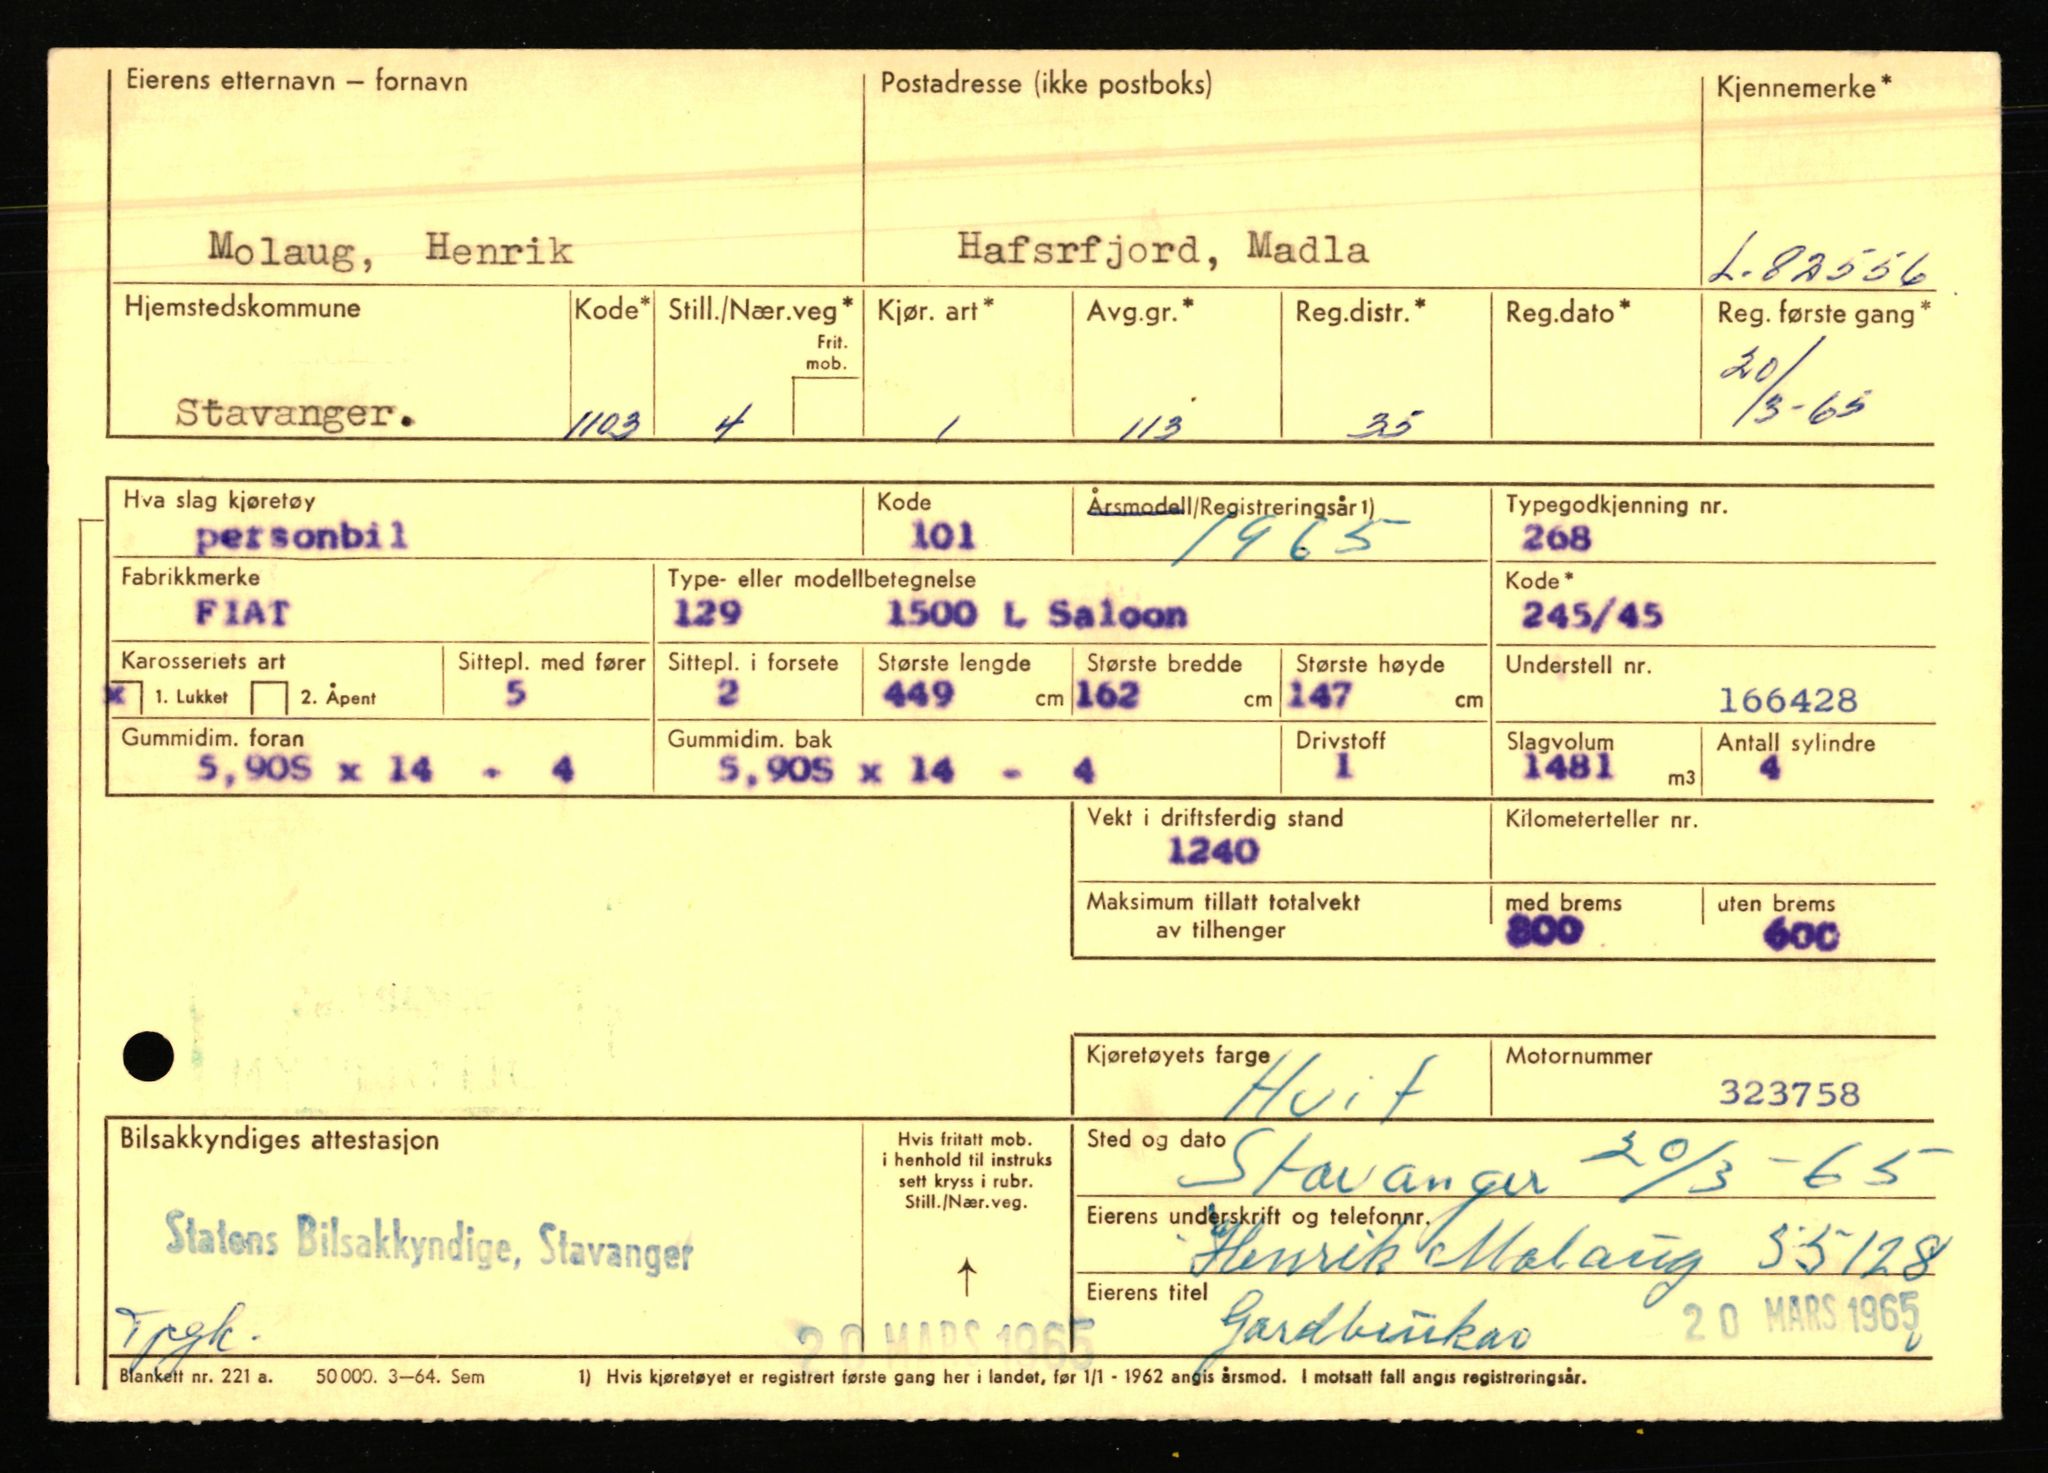 Eierens etternavn – fornavn Postadresse (ikke postboks) Kjennemerke*
Molaug, Henrik Hafsrfjord, Madla L-82556
Hjemstedskommune Kode* Still./Nær.veg* Kjør. art* Avg.gr.* Reg.distr.* Reg.dato* Reg. første gang*
Frit.
mob.
Stavanger. 1103 4 1 113 35 20/3-65
Hva slag kjøretøy Kode Årsmodell/Registreringsår1) Typegodkjenning nr.
personbil 101 1965 268
Fabrikkmerke Type- eller modellbetegnelse Kode*
FIAT 129 1500 L Saloon 245/45
Karosseriets art Sittepl. med fører Sittepl. i forsete Største lengde Største bredde Største høyde Understell nr.
x 1. Lukket 2. Åpent 5 2 449 cm 162 cm 147 cm 166428
Gummidim. foran Gummidim. bak Drivstoff Slagvolum Antall sylindre
5,90S x 14 - 4 5,90S x 14 - 4 1 1481 m3 4
Vekt i driftsferdig stand Kilometerteller nr.
1240
Maksimum tillatt totalvekt med brems uten brems
av tilhenger 800 600
Kjøretøyets farge Motornummer
Hvit 323758
Bilsakkyndiges attestasjon Hvis fritatt mob. Sted og dato
i henhold til instruks
sett kryss i rubr.
Still./Nær.veg.
Stavanger 20/3-65
Eierens underskrift og telefonnr.
Statens Bilsakkyndige, Stavanger Henrik Molaug 55128
Eierens titel
Tpgk. 20 MARS 1965 Gardbrukar 20 MARS 1965
Blankett nr. 221 a. 50 000. 3–64. Sem 1) Hvis kjøretøyet er registrert første gang her i landet, før 1/1 - 1962 angis årsmod. I motsatt fall angis registreringsår.